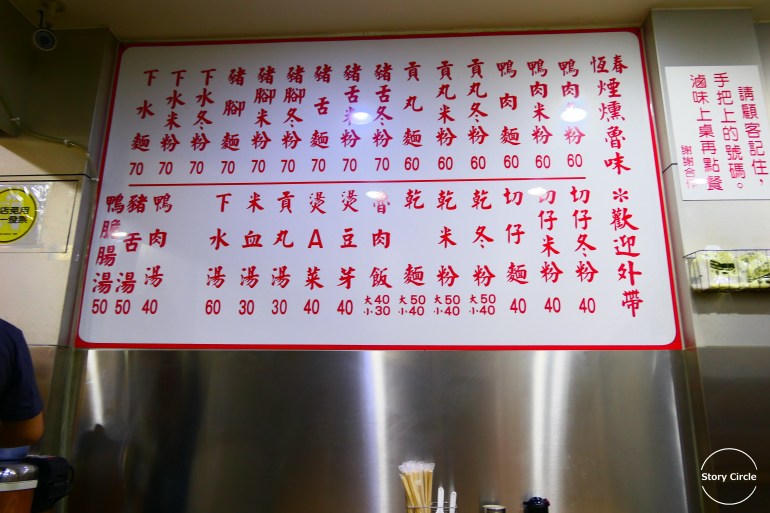 恆春煙燻魯味 *歡迎外帶
鴨肉冬粉 60
鴨肉米粉 60
鴨肉麵 60
貢丸冬粉 60
貢丸米粉 60
貢丸麵 60
豬舌冬粉 70
豬舌米粉 70
豬舌麵 70
豬腳冬粉 70
豬腳米粉 70
豬腳麵 70
下水冬粉 70
下水米粉 70
下水麵 70
切仔冬粉 40
切仔米粉 40
切仔麵 40
乾冬粉 大50 小40
乾米粉 大50 小40
乾麵 大50 小40
魯肉飯 大40 小30
燙豆芽 40
燙A菜 40
貢丸湯 30
米血湯 30
下水湯 60
鴨肉湯 40
豬舌湯 50
鴨脆腸湯 50
請顧客記住，
手把上的號碼。
滷味上桌再點餐
謝謝合作
Story Circle